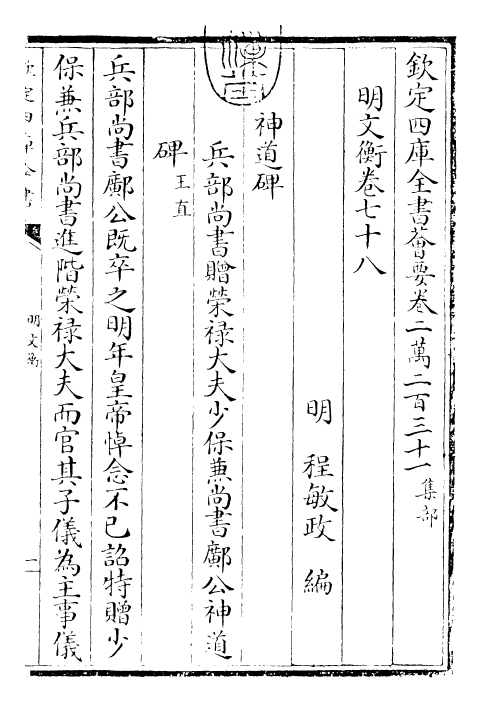 欽定四庫全書薈要卷二萬二百三十一集部
明文衡卷七十八
明 程敏政 編
神道碑
兵部尚書贈榮祿大夫少保兼尚書鄺公神道
碑王直
兵部尚書鄺公既卒之明年皇帝悼念不已詔特贈少
保兼兵部尚書進階榮祿大夫而官其子儀為主事儀
明文衡